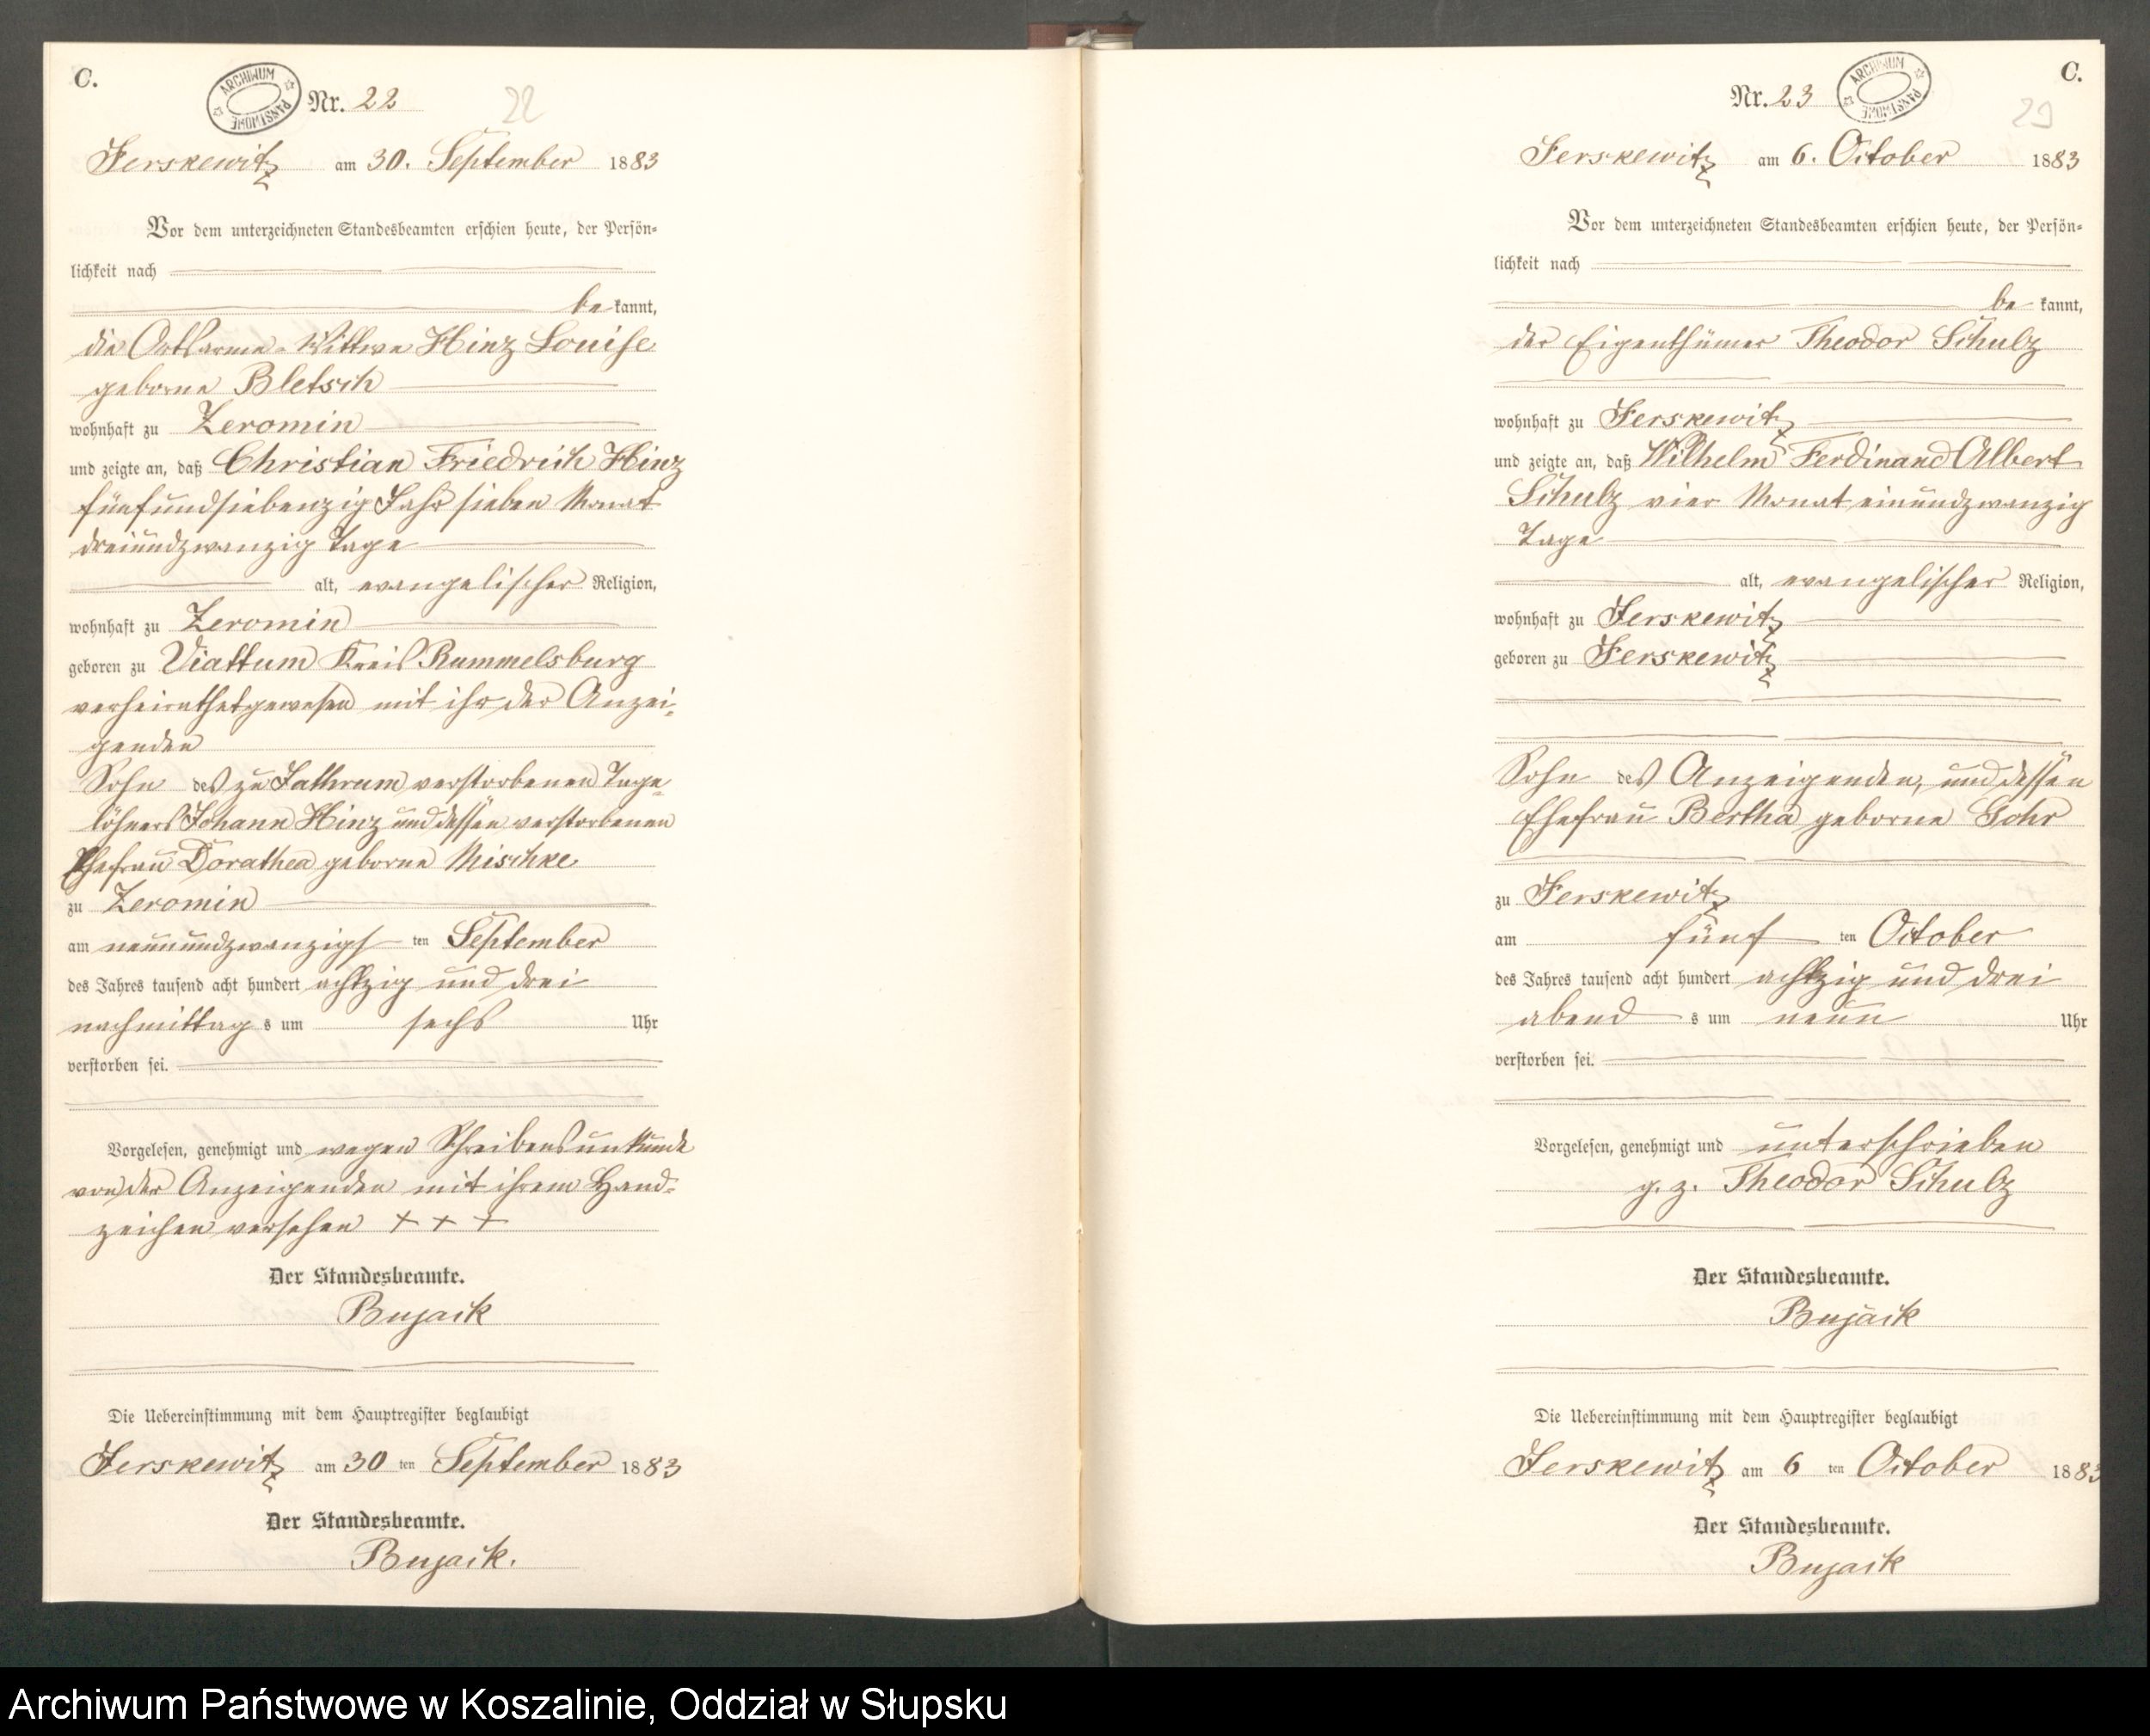 C.
ARCHIWUM PAŃSTWOWE
Nr. 22
22
Jerskewitz am 30. September 1883
Vor dem unterzeichneten Standesbeamten erschien heute, der Persön-
lichkeit nach
be kannt,
die Ortsarme-Wittwe Hinz Louise
geborne Bletsch
wohnhaft zu Zeromin
und zeigte an, daß Christian Friedrich Hinz
fünfundsiebenzig Jahr sieben Monat
dreiundzwanzig Tage
alt, evangelischer Religion,
wohnhaft zu Zeromin
geboren zu Viattum Kreis Rummelsburg
verheirathet gewesen mit ihr der Anzei-
genden
Sohn des zu verstorbenen Tage-
löhners Johann Hinz und dessen verstorbenen
Ehefrau Dorathea geborne Mischke
zu Zeromin
am neunundzwanzigs ten September
des Jahres tausend acht hundert achtzig und drei
nachmittag s um sechs Uhr
verstorben sei.
Vorgelesen, genehmigt und wegen Schreibensunkunde
von der Anzeigenden mit ihrem Hand-
zeichen versehen + + +
Der Standesbeamte.
Bujack
Die Uebereinstimmung mit dem Hauptregister beglaubigt
Jerskewitz am 30 ten September 1883
Der Standesbeamte.
Bujack.
C.
Nr. 23
ARCHIWUM PAŃSTWOWE
23
Jerskewitz am 6. October 1883
Vor dem unterzeichneten Standesbeamten erschien heute, der Persön-
lichkeit nach
be kannt,
der Eigenthümer Theodor Schulz
wohnhaft zu Jerskewitz
und zeigte an, daß Wilhelm Ferdinand Albert
Schulz vier Monat einundzwanzig
Tage
alt, evangelischer Religion,
wohnhaft zu Jerskewitz
geboren zu Jerskewitz
Sohn des Anzeigenden, und dessen
Ehefrau Bertha geborne Gohr
zu Jerskewitz
am fünf ten October
des Jahres tausend acht hundert achtzig und drei
abend s um neun Uhr
verstorben sei.
Vorgelesen, genehmigt und unterschrieben
g. z. Theodor Schulz
Der Standesbeamte.
Bujack
Die Uebereinstimmung mit dem Hauptregister beglaubigt
Jerskewitz am 6 ten October 1883
Der Standesbeamte.
Bujack
Archiwum Państwowe w Koszalinie, Oddział w Słupsku